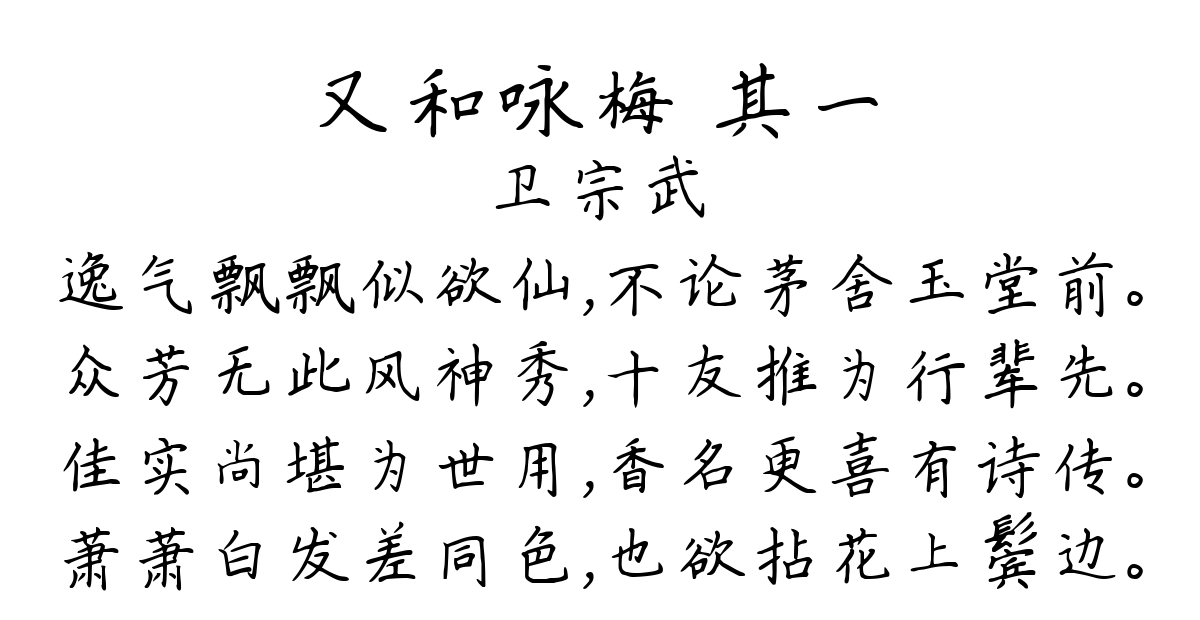 又和咏梅 其一
卫宗武
逸气飘飘似欲仙,不论茅舍玉堂前。
众芳无此风神秀,十友推为行辈先。
佳实尚堪为世用,香名更喜有诗传。
萧萧白发差同色,也欲拈花上鬓边。